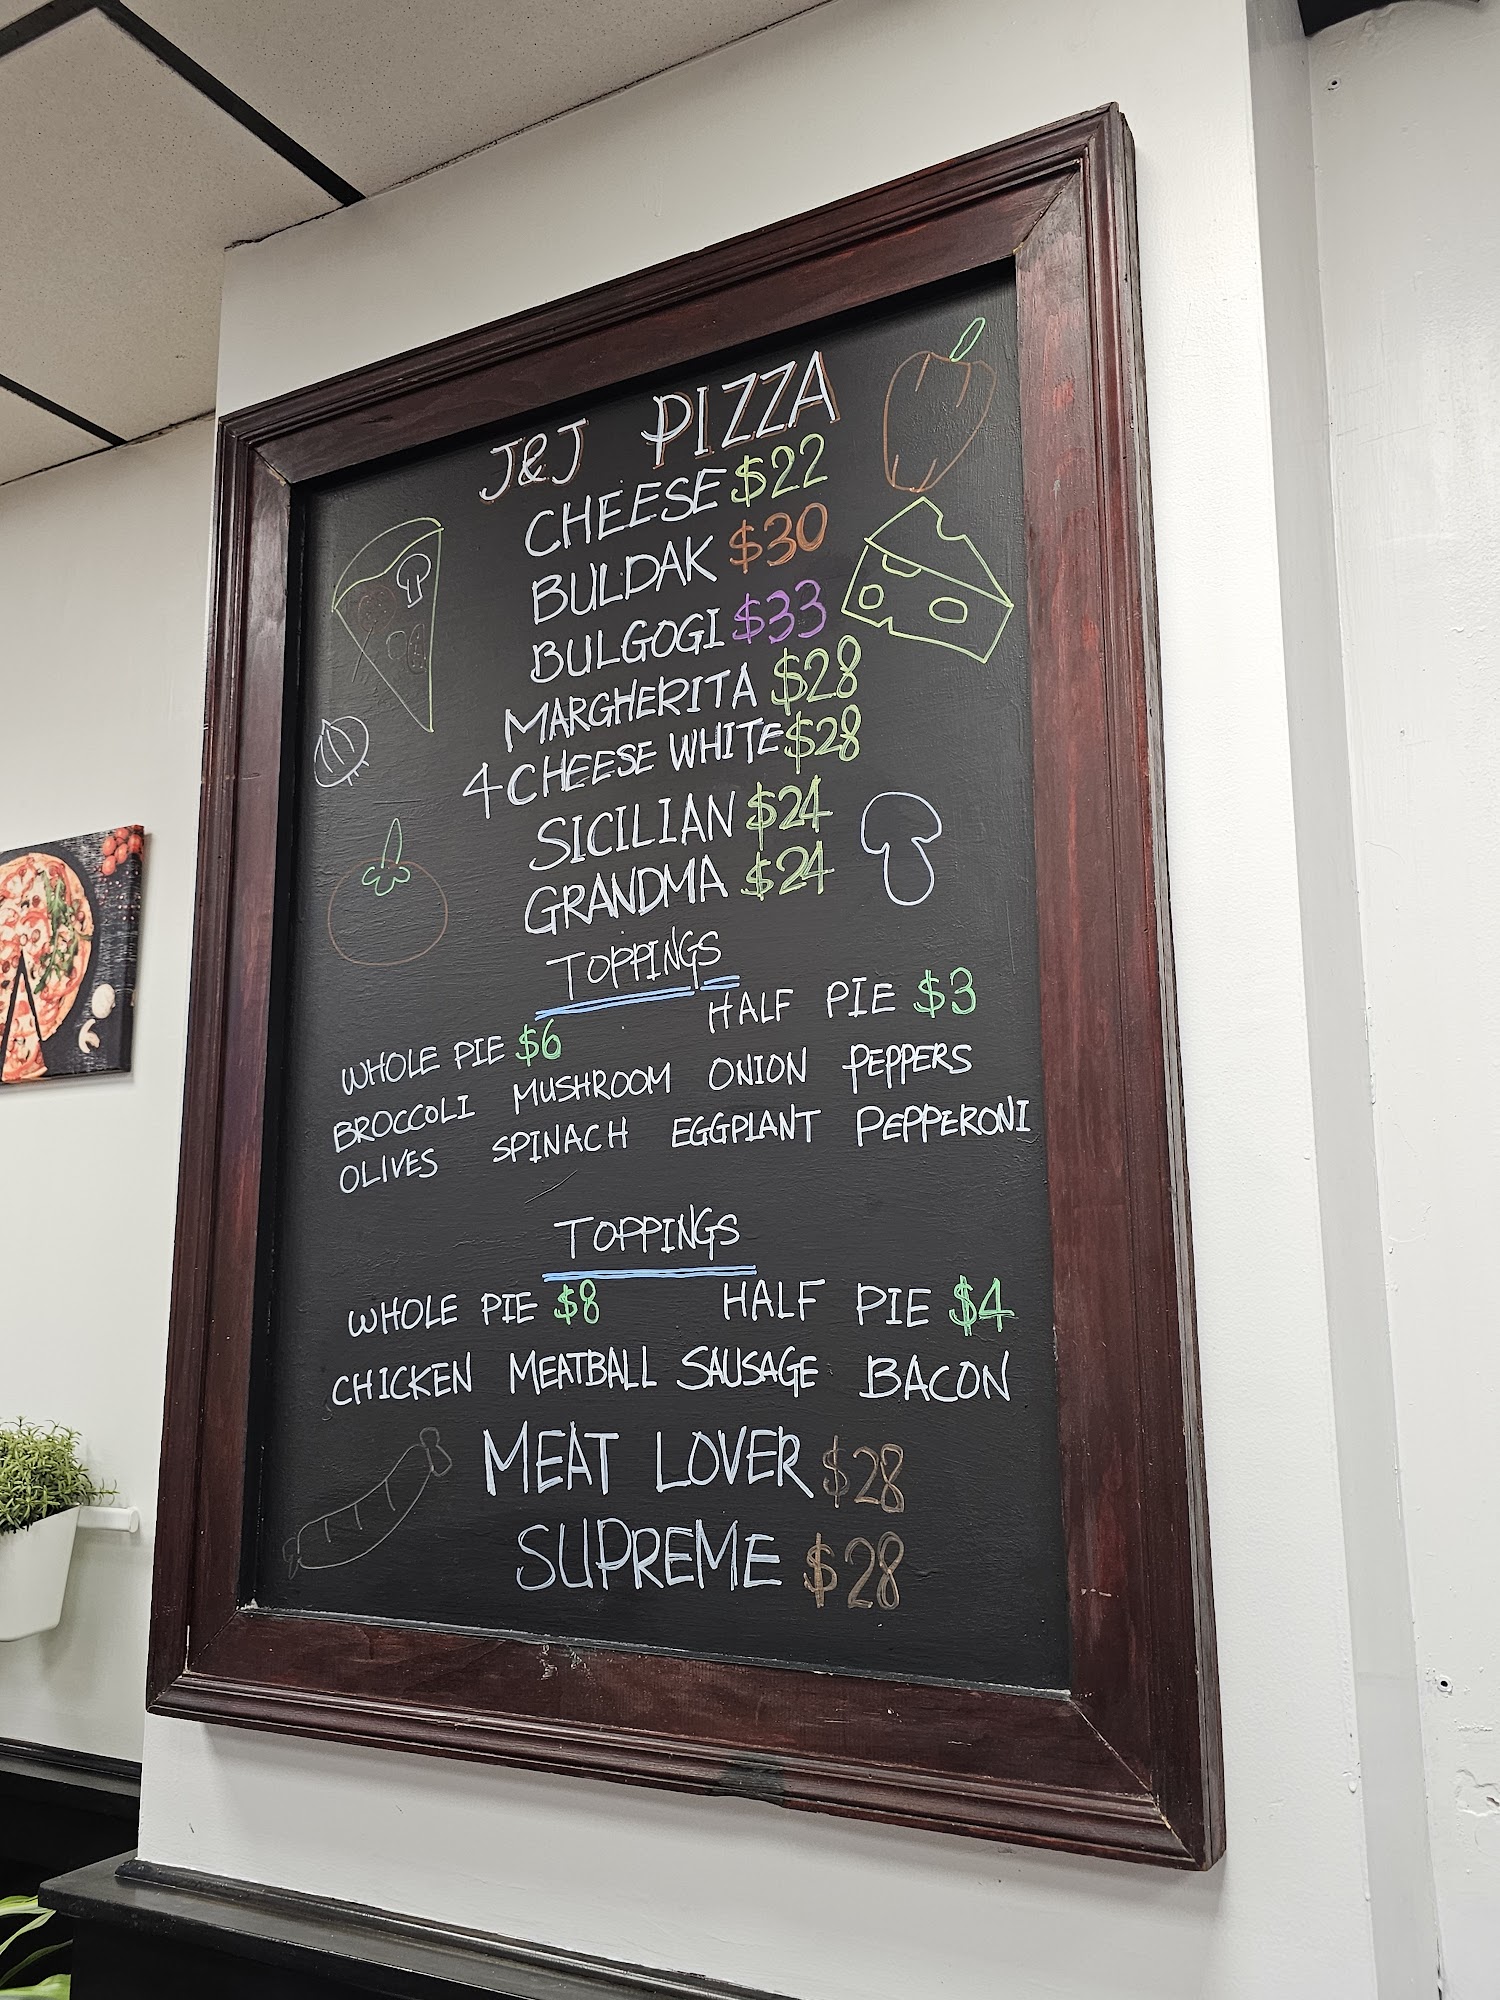 J&J PIZZA
CHEESE $22
BULDAK $30
BULGOGI $33
MARGHERITA $28
4 CHEESE WHITE $28
SICILIAN $24
GRANDMA $24
TOPPINGS
WHOLE PIE $6 HALF PIE $3
BROCCOLI MUSHROOM ONION PEPPERS
OLIVES SPINACH EGGPLANT PEPPERONI
TOPPINGS
WHOLE PIE $8 HALF PIE $4
CHICKEN MEATBALL SAUSAGE BACON
MEAT LOVER $28
SUPREME $28